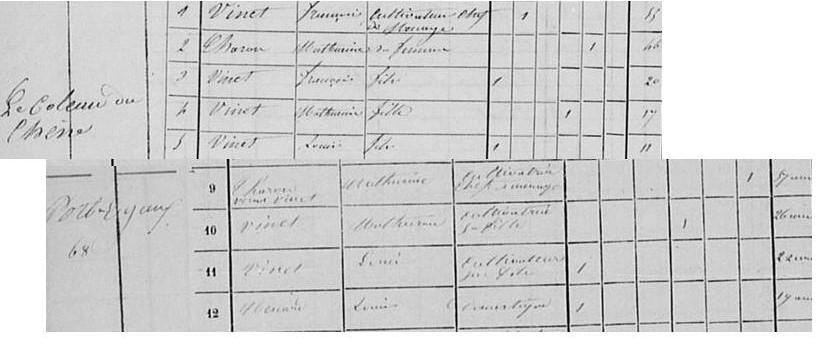 1 Vinet François Cultivateur chef 1 55
de Menage
2 Charon Mathurine sa femme 1 46
3 Vinet François fils 1 20
Le Coteau du
Chêne
4 Vinet Mathurine fille 1 17
5 Vinet Louis fils 1 11
9 Charon Mathurine Cultivatrice 1 57 ans
veuve Vinet Chef de menage
10 Vinet Mathurine Cultivatrice 1 26 ans
sa fille
68
11 Vinet Louis Cultivateur 1 22 ans
son fils
12 Louis Domestique 1 19 ans